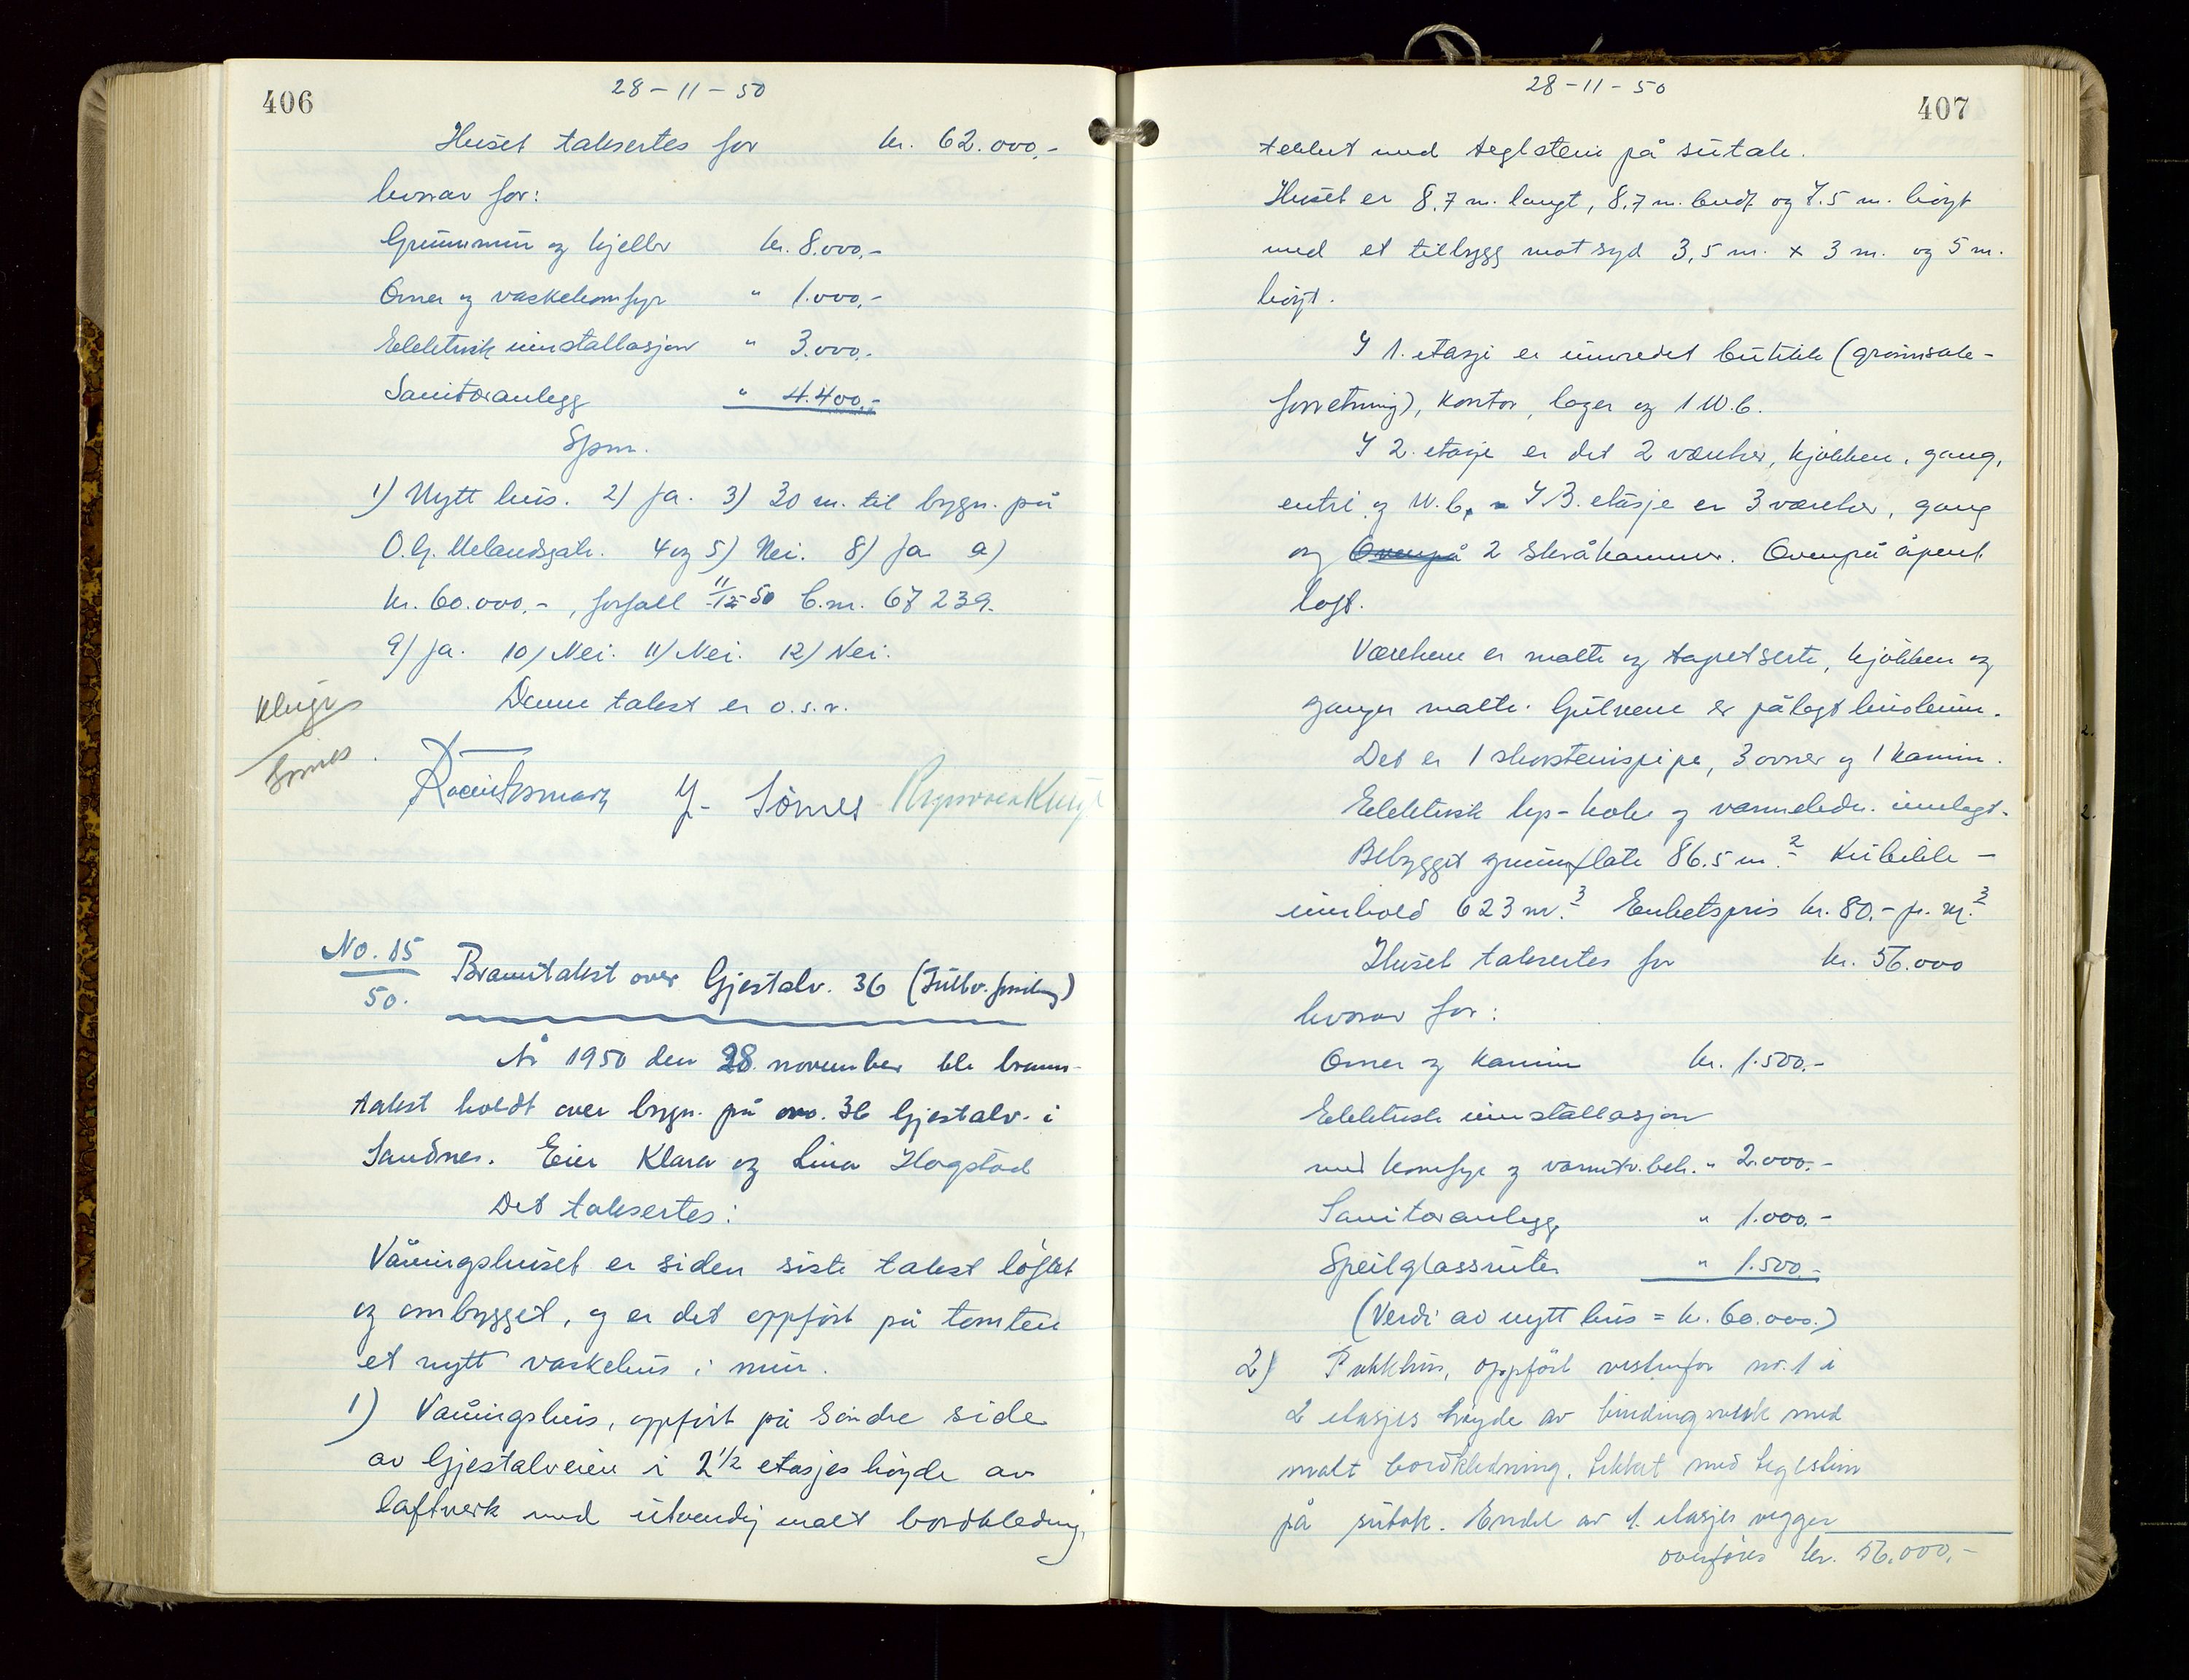 406
28-11-50
Huset taksertes for kr. 62.000,-
hvorav for:
Grunnmur og kjeller kr. 8.000,-
Ovner og vaskekomfyr " 1.000,-
Elektrisk innstallasjon " 3.000,-
Sanitæranlegg " 4.400,-
Spm.
1) Nytt hus. 2) Ja. 3) 30 m. til bygn. på
O.G. Uelandsgate. 4 og 5) Nei. 8) Ja a)
kr. 60.000,-, forfall 11/12-50 b.m. 67239.
9) Ja. 10) Nei. 11) Nei. 12) Nei.
Denne takst er o.s.v.
Kluge
Sömes
Y. Sömes
No. 15
50.
Branntakst over Gjestalv. 36
År 1950 den 28. november ble brann-
takst holdt over bygn. på nr. 36 Gjestalv. i
Sandnes. Eier Klara og Lina Hogstad
Det takseres:
Våningshuset er siden siste takst löftet
og ombygget, og er det oppfört på tomten
et nytt vaskehus i mur.
1) Våningshus, oppfört på söndre side
av Gjestalveien i 2 1/2 etasjes höyde av
laftverk med utvendig malt bordkledning,
28-11-50
407
tekket med teglstein på sutak.
Huset er 8,7 m. langt, 8,7 m. bredt og 7.5 m. höyt
med et tilbygg mot syd 3,5 m. x 3 m. og 5 m.
höyt.
I 1. etasje er innredet butikk (grönnsak-
forretning), kontor, lager og 1 W.C.
I 2. etasje er det 2 værelser, kjökken, gang,
entre og W.C. I 3. etasje er 3 værelser, gang
og Ovenpå 2 skråkammer. Ovenpå åpent
loft.
Værelsene er malte og tapetserte, kjökken og
ganger malte. Gulvene er pålagt linoleum.
Det er 1 skorsteinspipe, 3 ovner og 1 kamin.
Elektrisk lys- koke og varmeledn. innlagt.
Bebygget grunnflate 86.5 m.2 Kubikk-
innhold 623 m.3 Enhetspris kr. 80.- pr. m.3
Huset takseres for kr. 56.000
hvorav for:
Ovner og kamin kr. 1.500,-
Elektrisk innstallasjon
med komfyr og varmtv.beh. " 2.000,-
Sanitæranlegg " 1.000,-
Speilglassruter " 1.500,-
(Verdi av nytt hus = kr. 60.000.)
2) Pakkhus, oppfört vestenfor nr. 1 i
2 etasjes höyde av bindingsverk med
malt bordkledning. tekket med teglstein
på sutak. Endel av 1. etasjes vegger
overföres kr. 56.000,-